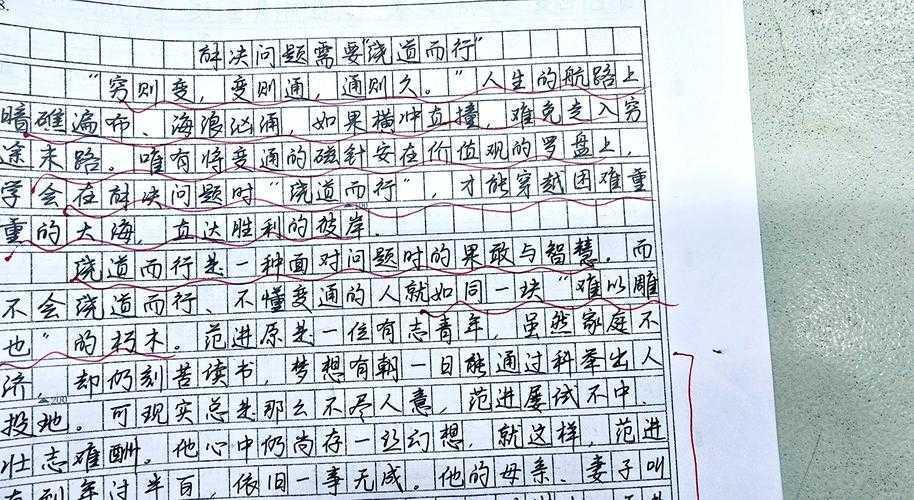 解决问题需要“绕道而行”
“穷则变，变则通，通则久。”人生的航路上
暗礁遍布、海浪汹涌，如果横冲直撞，难免走入穷
途末路。唯有将变通的磁针安在价值观的罗盘上，
学会在解决问题时“绕道而行”，才能穿越困难重
重的大海，直达胜利的彼岸。
绕道而行是一种面对问题时的果敢与智慧。而
不会绕道而行、不懂变通的人就如同一块“难以雕
也”的朽木。范进原是一位有志青年，虽然家庭不
济，却仍刻苦读书，梦想有朝一日能通过科举出人
投地。可现实总是那么不尽人意，范进屡试不中，
壮志难酬。他心中仍尚存一丝幻想，就这样，范进
到年过半百，依旧一事无成。他的母亲、妻子叫